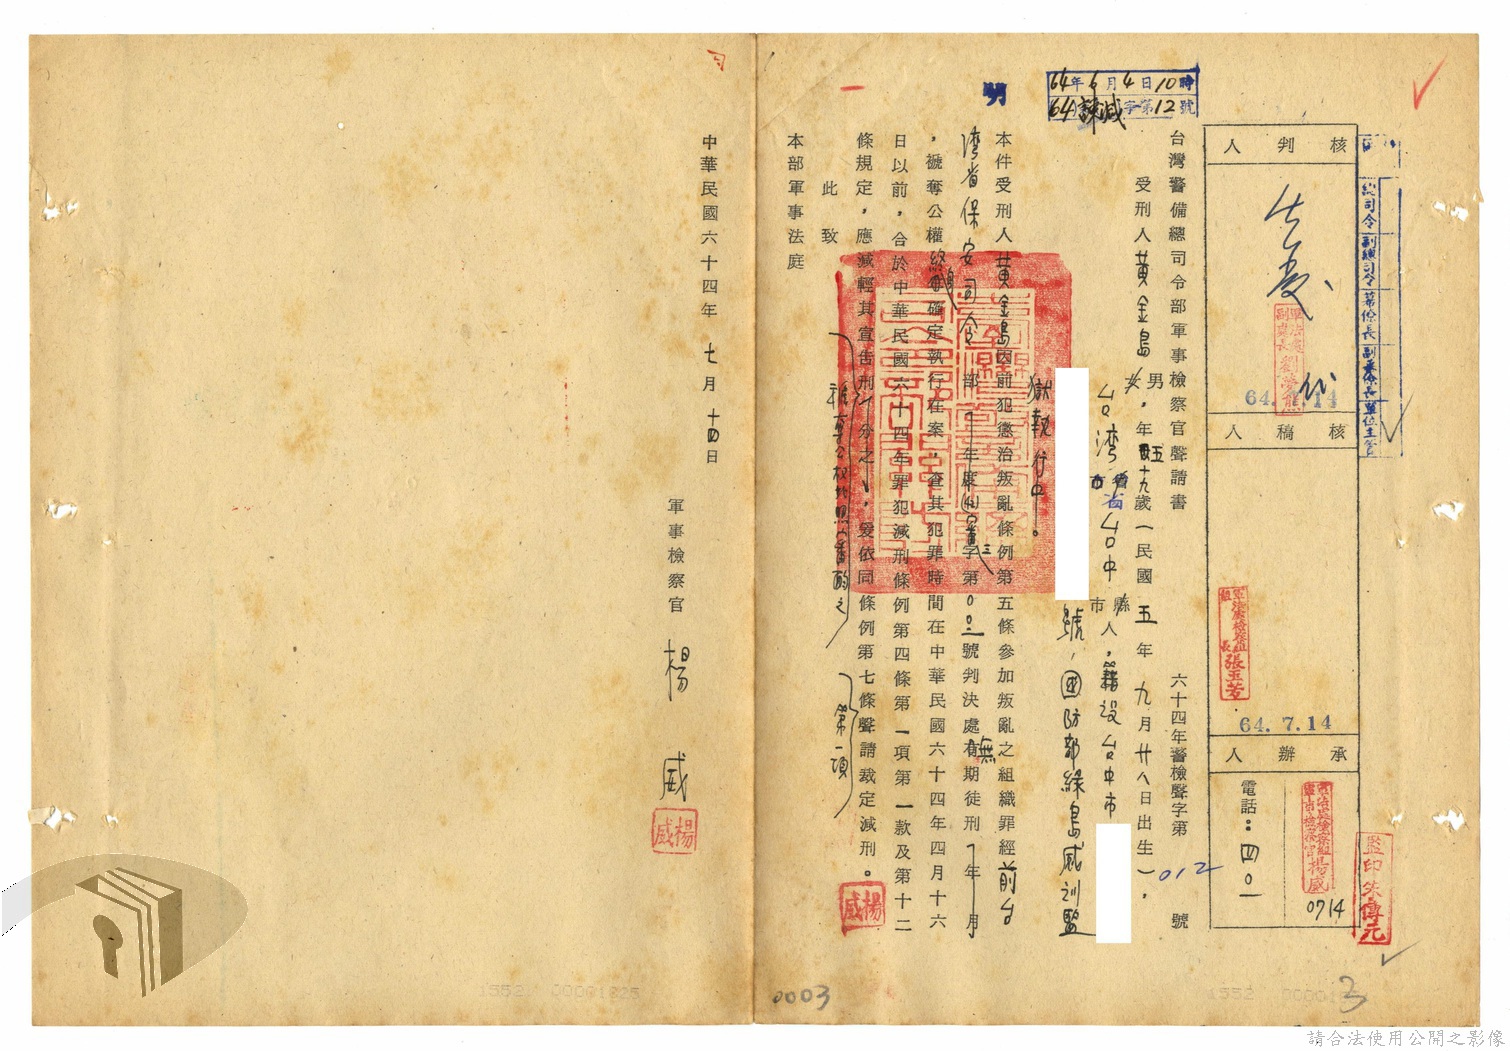 64年6月4日10時
(64)諫減字第12號
核判人
64.7.14
代
核稿人
軍法處檢察組組長張玉芳
64.7.14
承辦人
電話：四〇一
楊威
0714
總司令
副總司令
參謀長
副參謀長
單位主管
監印朱傳元
台灣警備總司令部軍事檢察官聲請書
六十四年警檢聲字第012號
受刑人黃金島 男女，年五十九歲（民國五年九月廿八日出生），
台灣省台中市縣人，籍設台中市
號，國防部綠島感訓監
獄執行中。
本件受刑人黃金島因前犯懲治叛亂條例第五條參加叛亂之組織罪經前台
灣省保安司令部
年度
字第
號判決處無期徒刑
年
月
，褫奪公權終身確定執行在案，查其犯罪時間在中華民國六十四年四月十六
日以前，合於中華民國六十四年罪犯減刑條例第四條第一項第一款及第十二
條規定，應減輕其宣告刑
分之
，爰依同條例第七條聲請裁定減刑。
第一項
楊威
此致
本部軍事法庭
中華民國六十四年七月十四日
軍事檢察官 楊威
楊威
0003
3
1552 00001825
1552
請合法使用公開之影像